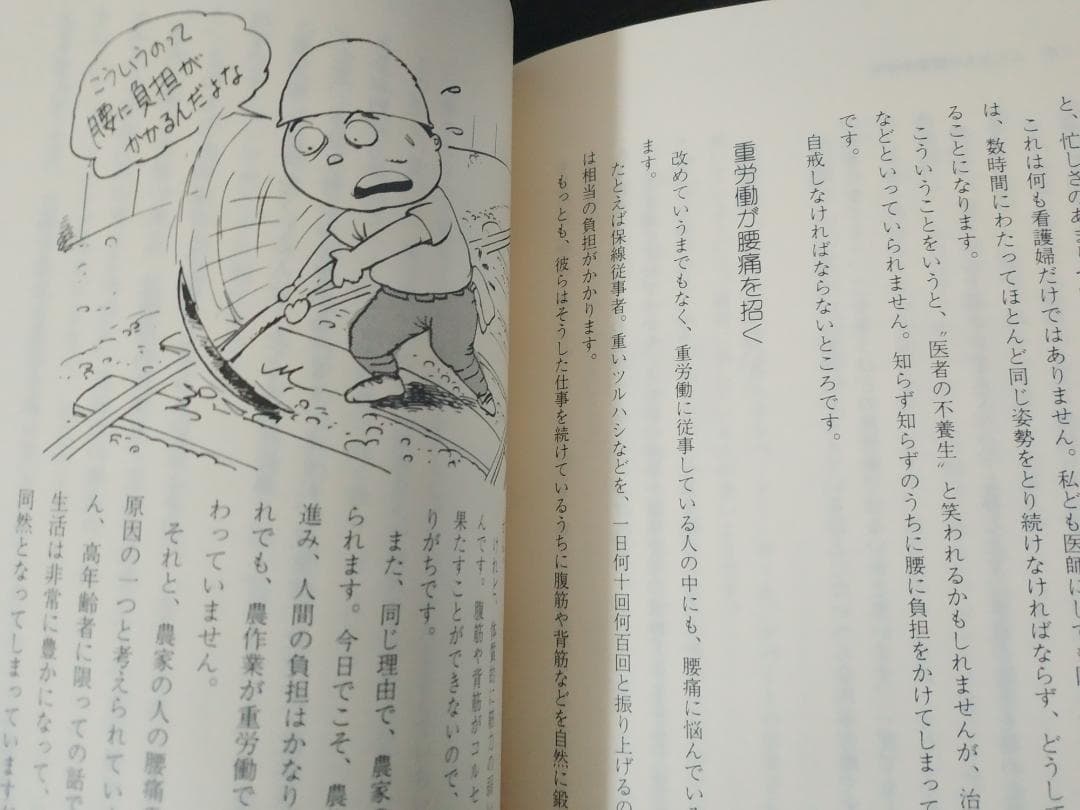 と、忙しさのあまり
これは何も看護婦だけではありません。私ども医師にしても
は、数時間にわたってほとんど同じ姿勢をとり続けなければならず、どうして
ることになります。
こういうことをいうと、〝医者の不養生〟と笑われるかもしれませんが、治
などといっていられません。知らず知らずのうちに腰に負担をかけてしまって
です。
自戒しなければならないところです。
重労働が腰痛を招く
改めていうまでもなく、重労働に従事している人の中にも、腰痛に悩んでいる
ます。
たとえば保線従事者。重いツルハシなどを、一日何十回何百回と振り上げるの
は相当の負担がかかります。
もっとも、彼らはそうした仕事を続けているうちに腹筋や背筋などを自然に鍛
こういうのって
腰に負担が
かかるんだよな
んです。腹筋や背筋がコルセ
果たすことができないので、
りがちです。
また、同じ理由で、農家
られます。今日でこそ、農
進み、人間の負担はかなり
れでも、農作業が重労働で
わっていません。
それと、農家の人の腰痛
原因の一つと考えられてい
ん、高年齢者に限っての話で
生活は非常に豊かになって、
同然となってしまっています